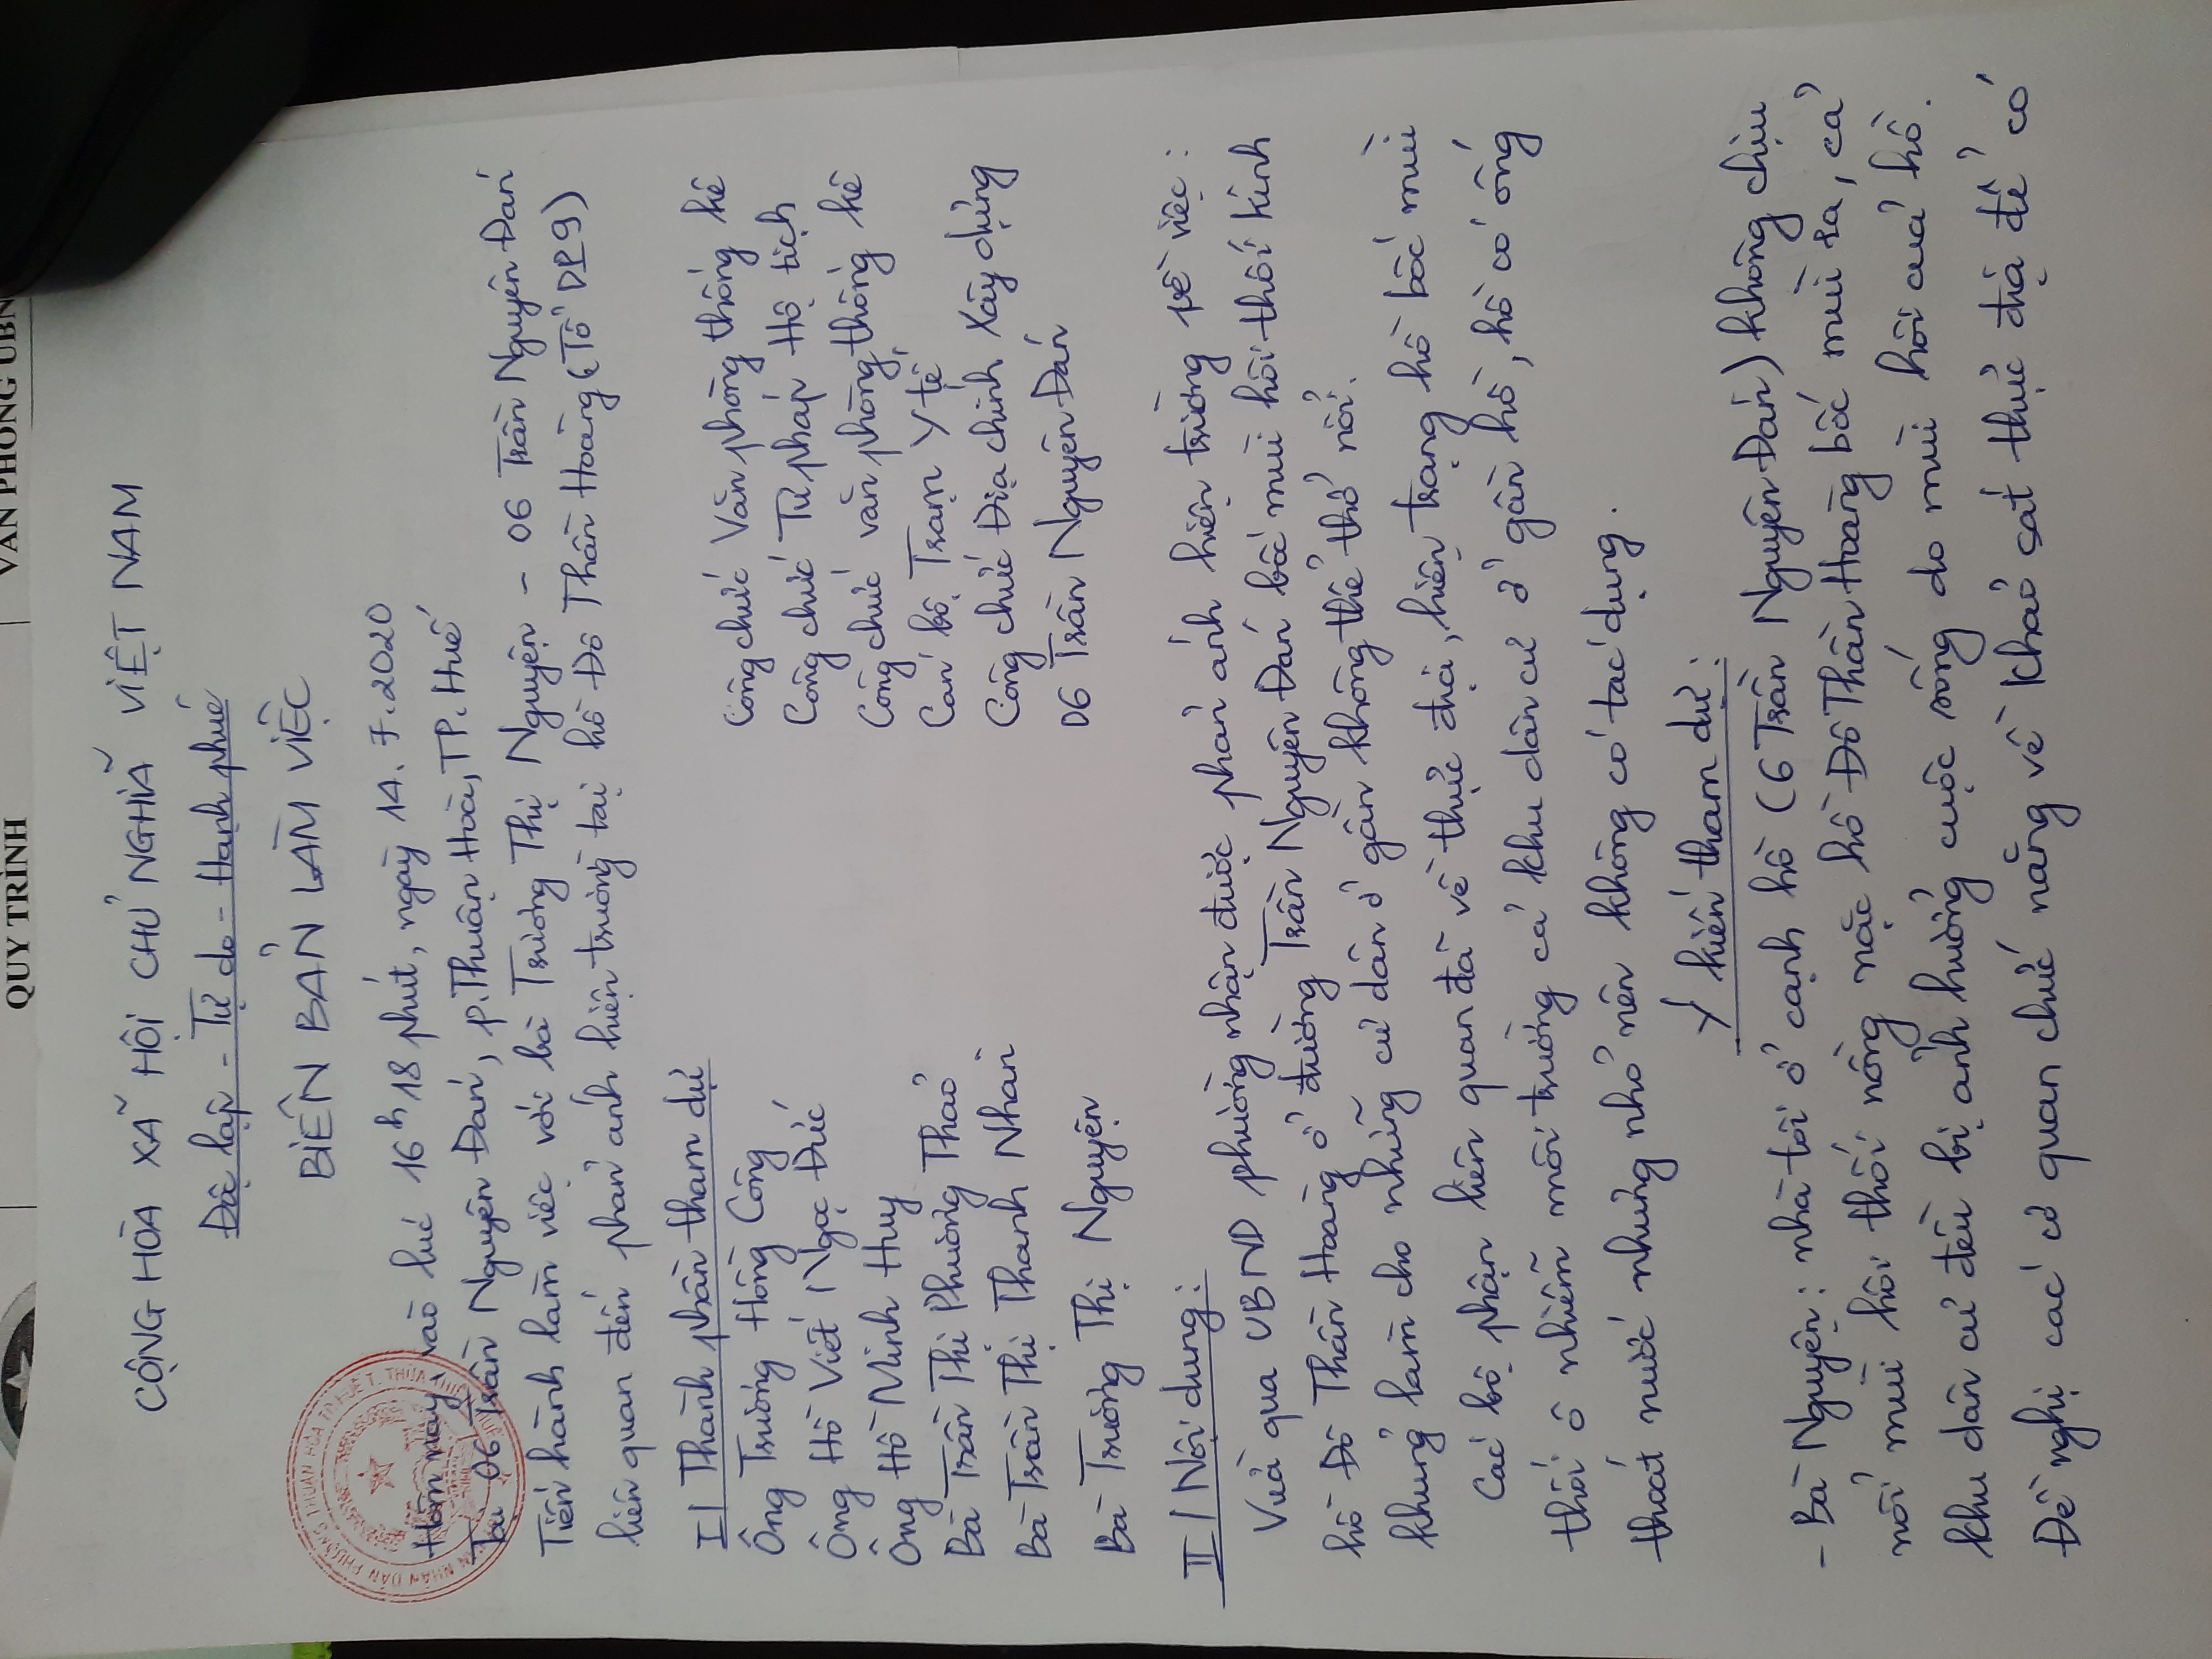 VĂN PHÒNG UBN
QUY TRÌNH
CỘNG HÒA XÃ HỘI CHỦ NGHĨA VIỆT NAM
Độc lập - Tự do - Hạnh phúc
BIÊN BẢN LÀM VIỆC
Hôm nay, vào lúc 16h18 phút, ngày 14.7.2020
Tại 06 Trần Nguyên Đán, P.Thuận Hoà, TP. Huế
Tiến hành làm việc với bà Trương Thị Nguyện - 06 Trần Nguyên Đán
liên quan đến phản ánh hiện trường tại hồ Đô Thần Hoàng (Tổ DP 9)
I/ Thành phần tham dự
Ông Trương Hồng Công Công chức Văn phòng thống kê
Ông Hồ Viết Ngọc Đức Công chức Tư pháp Hộ tịch
Ông Hồ Minh Huy Công chức văn phòng thống kê
Bà Trần Thị Phương Thảo Cán bộ Trạm Y tế
Bà Trần Thị Thanh Nhàn Công chức Địa chính Xây dựng
Bà Trương Thị Nguyện 06 Trần Nguyên Đán
II/ Nội dung:
Vừa qua UBND phường nhận được phản ánh hiện trường về việc:
hồ Đô Thần Hoàng ở đường Trần Nguyên Đán bốc mùi hôi thối kinh
khủng làm cho những cư dân ở gần không thể thở nổi.
Các bộ phận liên quan đã về thực địa, hiện trạng hồ bốc mùi
thối ô nhiễm môi trường cả khu dân cư ở gần hồ, hồ có ống
thoát nước nhưng nhỏ nên không có tác dụng.
Ý kiến tham dự:
- Bà Nguyện: nhà tôi ở cạnh hồ (6 Trần Nguyên Đán) không chịu
nổi mùi hôi thối nồng nặc hồ Đô Thần Hoàng bốc mùi ra, cả
khu dân cư đều bị ảnh hưởng cuộc sống do mùi hôi của hồ.
Đề nghị các cơ quan chức năng về khảo sát thực địa để có